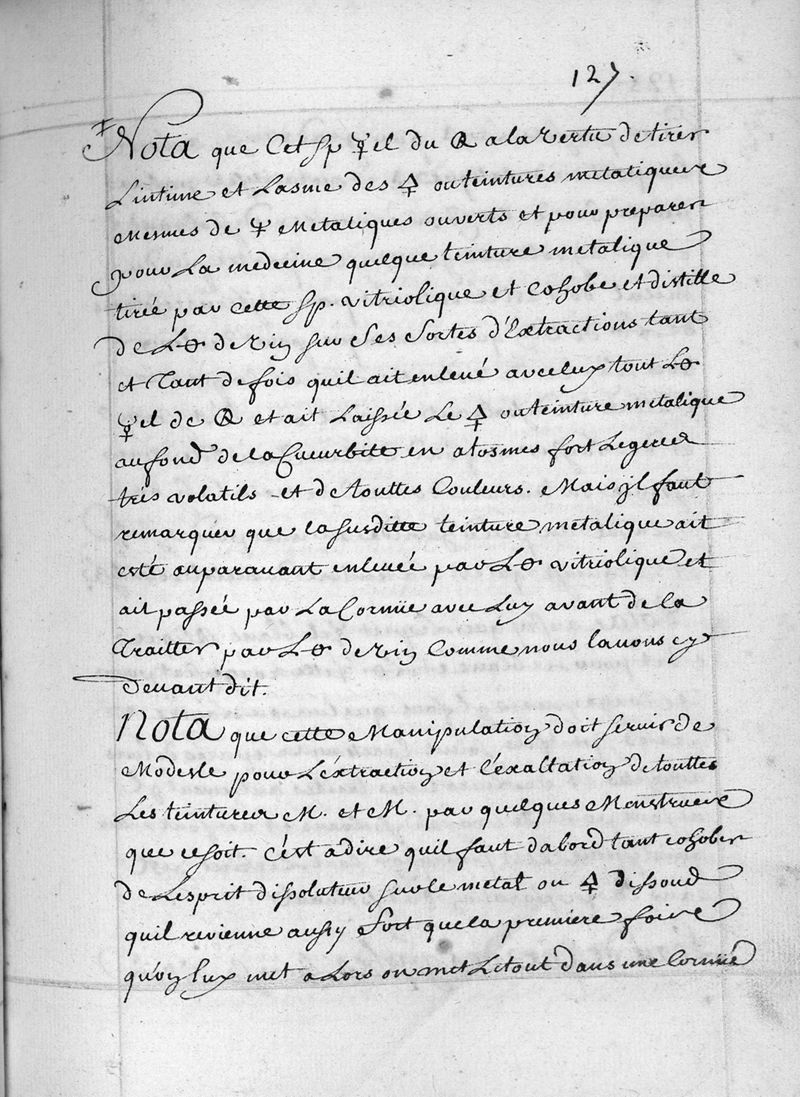 127.
Nota que Cet sp 🜿el du R a la vertu de tirer
L'intime et Lasme des 🜍 ou teintures metaliques
Mesmes de Metaliques ouverts et pour preparer
pour La medecine quelque teinture metalique
tirée par cette sp. vitriolique et Cohobe et distille
de L'🜔 de vin sur Ses Sortes d'Extractions tant
et Tant de fois quil ait enlevé avec lux tout L'🜔
🜿el de R et ait Laissée Le 🜍 ou teinture metalique
au fond de la Cucurbite en atosmes fort Legeres
très volatils et de touttes Couleurs. Mais jl faut
remarquer que la susditte teinture metalique ait
esté auparavant enlevée par L'🜔 vitriolique et
ait passée par La Cornüe avec Luy avant de la
Traitter par L'🜔 de vin Comme nous lavons cy
Devant dit.
Nota que cette Manipulation doit servir de
Modesle pour L'extraction et l'exaltation de touttes
Les teintures M. et M. par quelques Menstrues
que ce soit. C'est a dire quil faut dabord tant cohober
de Lesprit dissoluteur sur le metal ou 🜍 dissoud
quil revienne aussy Fort que la premiere fois
qu'on lux met a Lors on met Le tout dans une Cornüe